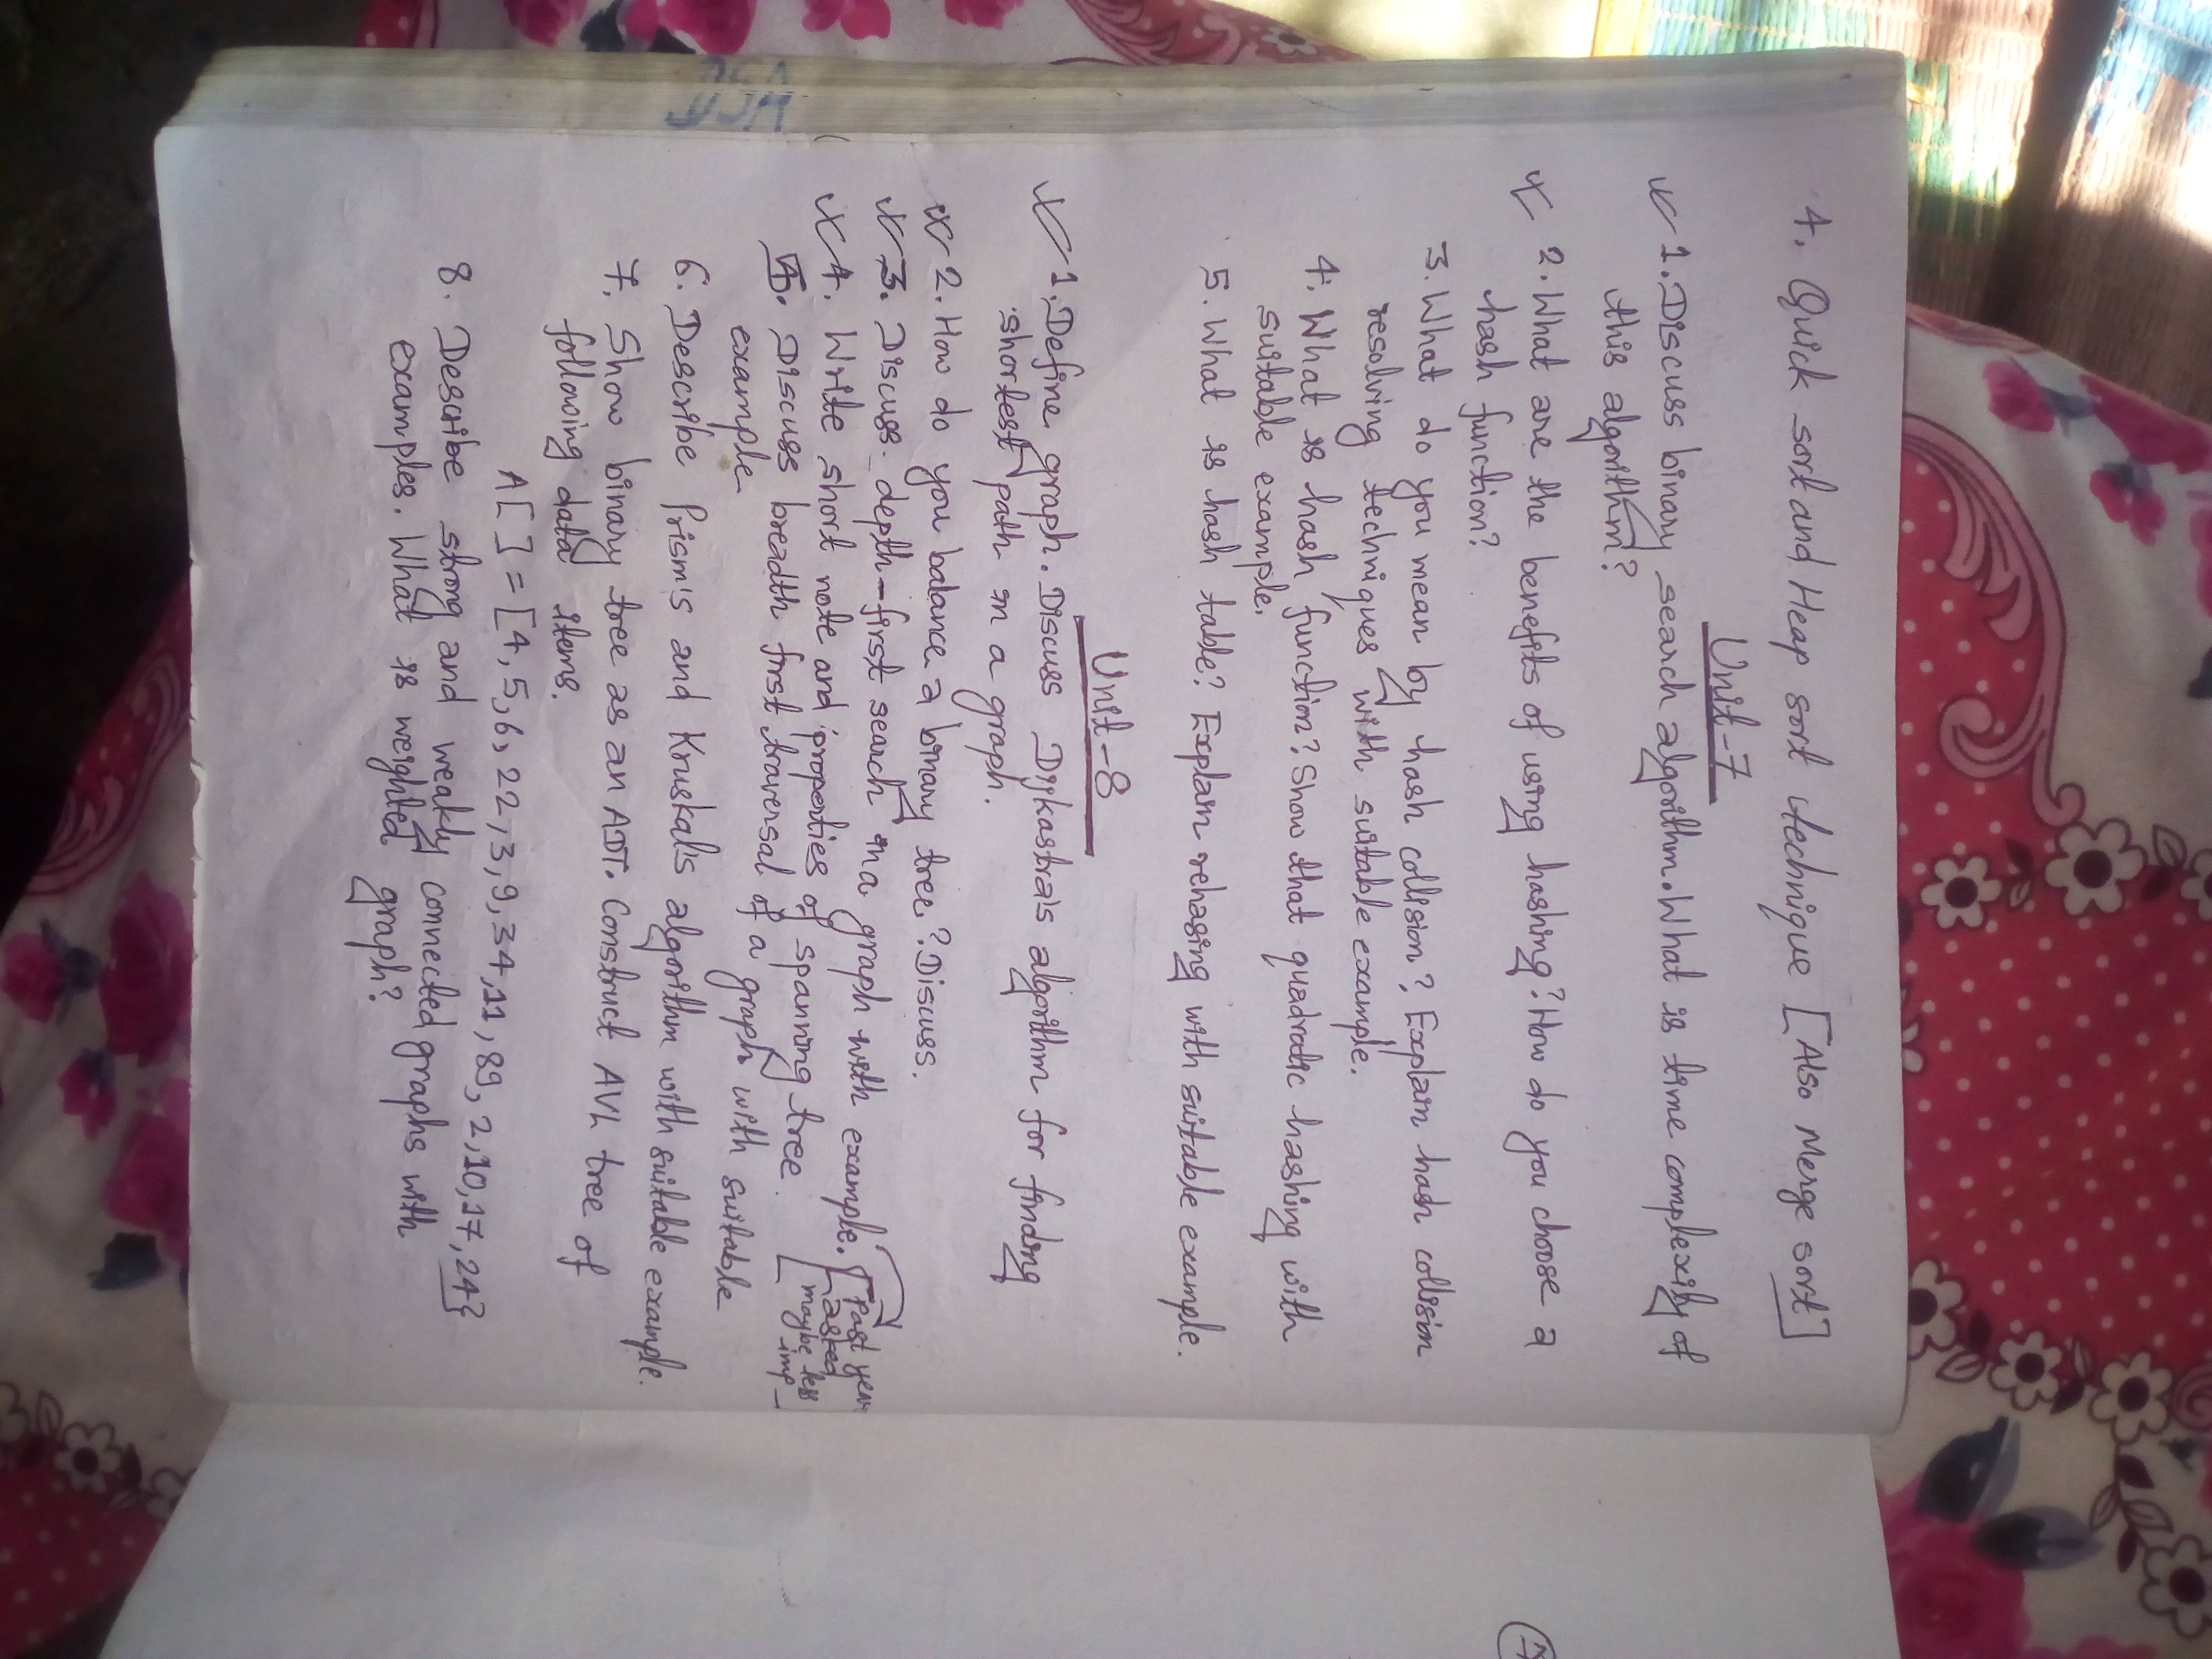 4. Quick sort and Heap sort technique [Also Merge sort]
Unit-7
1. Discuss binary search algorithm. What is time complexity of
this algorithm?
2. What are the benefits of using hashing? How do you choose a
hash function?
3. What do you mean by hash collision? Explain hash collision
resolving techniques with suitable example.
4. What is hash function? Show that quadratic hashing with
suitable example.
5. What is hash table? Explain rehasing with suitable example.
Unit-8
1. Define graph. Discuss Dijkastra's algorithm for finding
shortest path in a graph.
2. How do you balance a binary tree? Discuss.
3. Discuss depth-first search in a graph with example.
[Past year
asked
maybe less
imp]
4. Write short note and properties of spanning tree.
5. Discuss breadth first traversal of a graph with suitable
example
6. Describe Prism's and Kruskal's algorithm with suitable example.
7. Show binary tree as an ADT. Construct AVL tree of
following data items.
A[ ] = [4, 5, 6, 22, 3, 9, 34, 11, 89, 2, 10, 17, 24}
8. Describe strong and weakly connected graphs with
examples. What is weighted graph?